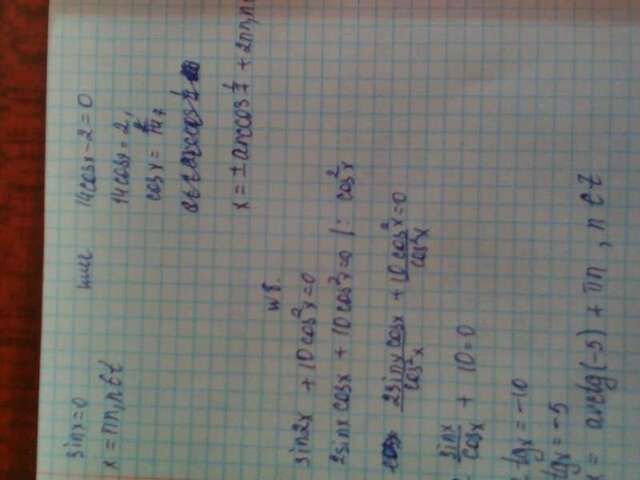 sinx=0 или 14cosx-2=0
x=πn, n∈Z 14cosx=2,
cosx=2/14,
x=±arccos 1/7 + 2πn, n
№8.
sin2x + 10cos²x=0
2sinx cosx + 10cos²x=0 |: cos²x
2sinx cosx/cos²x + 10cos²x/cos²x=0
sinx/cosx + 10=0
tgx=-10
tgx=-5
x= arctg(-5) + πn, n∈Z